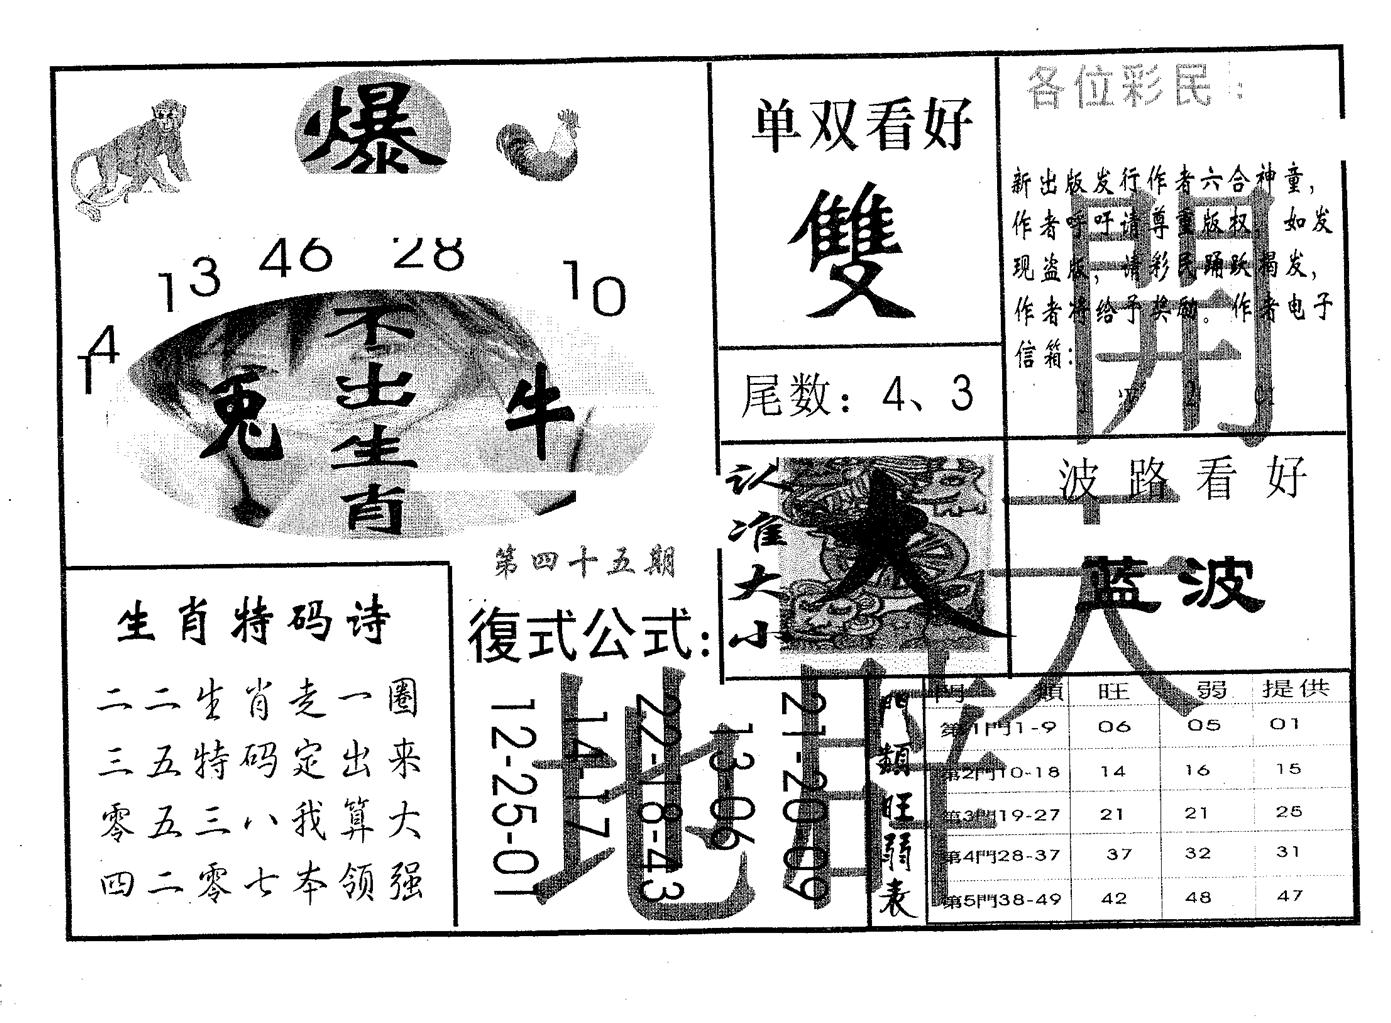 爆
46
28
13
10
14
不出生肖
兎
牛
第四十五期
单双看好
雙
尾数：4、3
各位彩民：
新出版发行作者六合神童，
作者呼吁请尊重版权，如发
现盗版，请彩民踊跃揭发，
作者将给予奖励。作者电子
信箱：
认准大小
大
波路看好
蓝波
開天辟地
生肖特码诗
二二生肖走一圈
三五特码定出来
零五三八我算大
四二零七本领强
復式公式：
12-25-01
14-17
22-18-43
13-06
21-20-09
門類旺弱表
門類 旺 弱 提供
第1門1-9 06 05 01
第2門10-18 14 16 15
第3門19-27 21 21 25
第4門28-37 37 32 31
第5門38-49 42 48 47